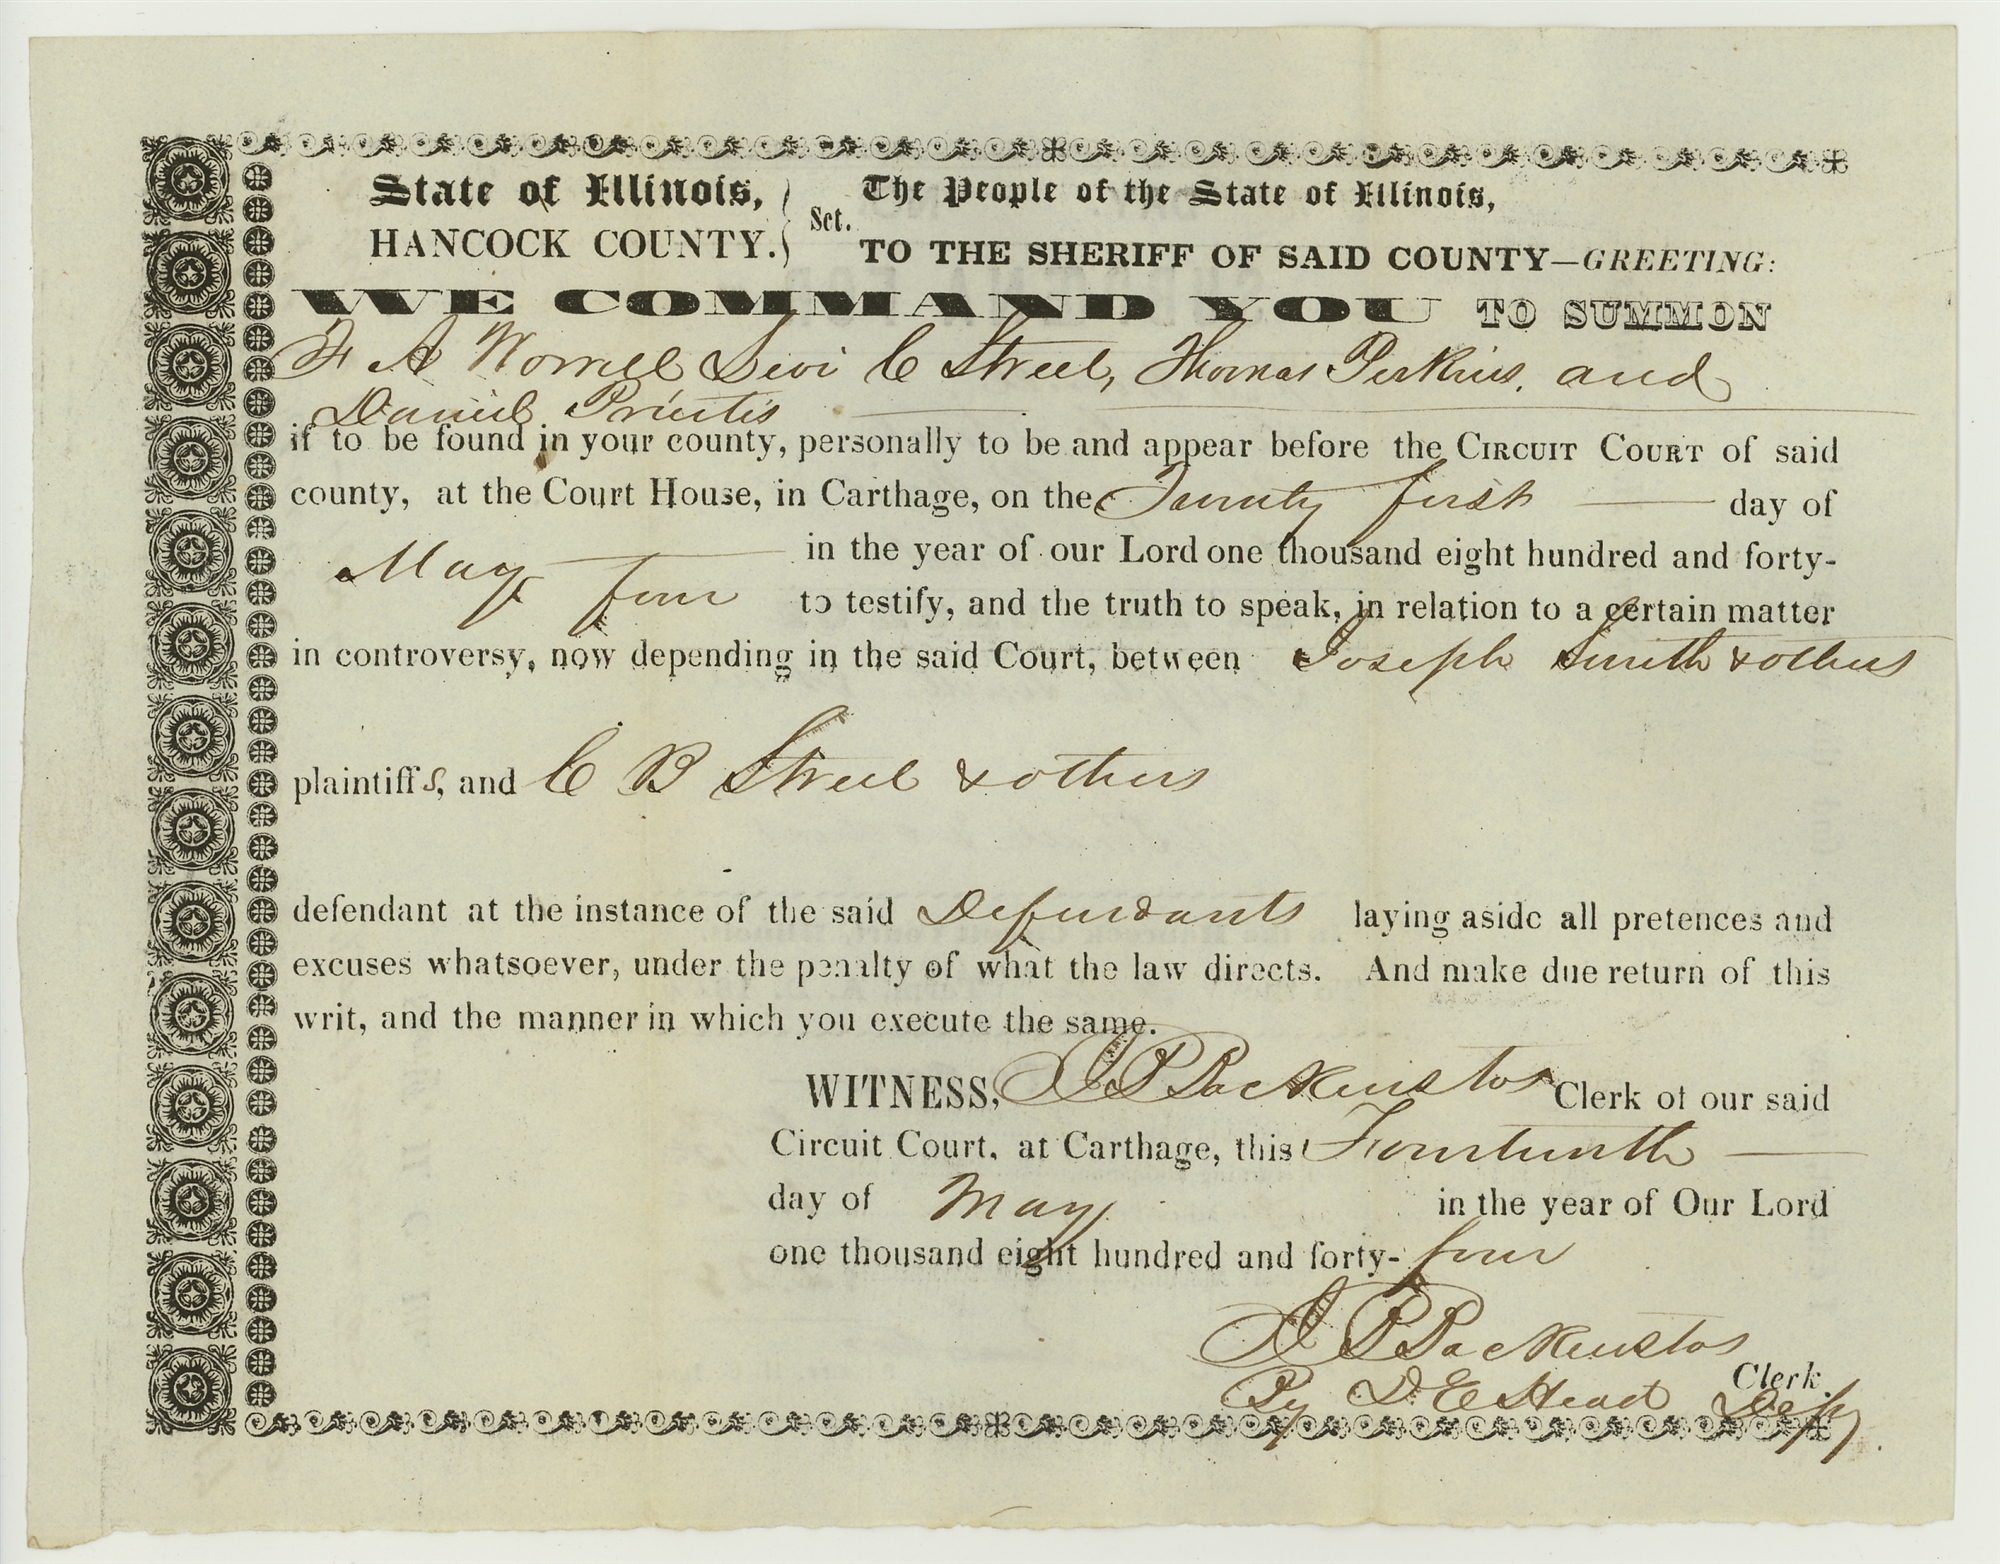 State of Illinois,
HANCOCK COUNTY.
Sct.
The People of the State of Illinois,
TO THE SHERIFF OF SAID COUNTY—GREETING:
WE COMMAND YOU TO SUMMON
F A Worrell Levi C Street, Thomas Perkins, and
Daniel Prentis
if to be found in your county, personally to be and appear before the CIRCUIT COURT of said
county, at the Court House, in Carthage, on the Twenty first day of
May in the year of our Lord one thousand eight hundred and forty-
four to testify, and the truth to speak, in relation to a certain matter
in controversy, now depending in the said Court, between Joseph Smith & others
plaintiffs, and C B Street & others
defendant at the instance of the said Defendants laying aside all pretences and
excuses whatsoever, under the penalty of what the law directs. And make due return of this
writ, and the manner in which you execute the same.
WITNESS, J B Backenstos Clerk of our said
Circuit Court, at Carthage, this Fourteenth
day of May in the year of Our Lord
one thousand eight hundred and forty-four
J B Backenstos
Clerk
By D E Head Depy